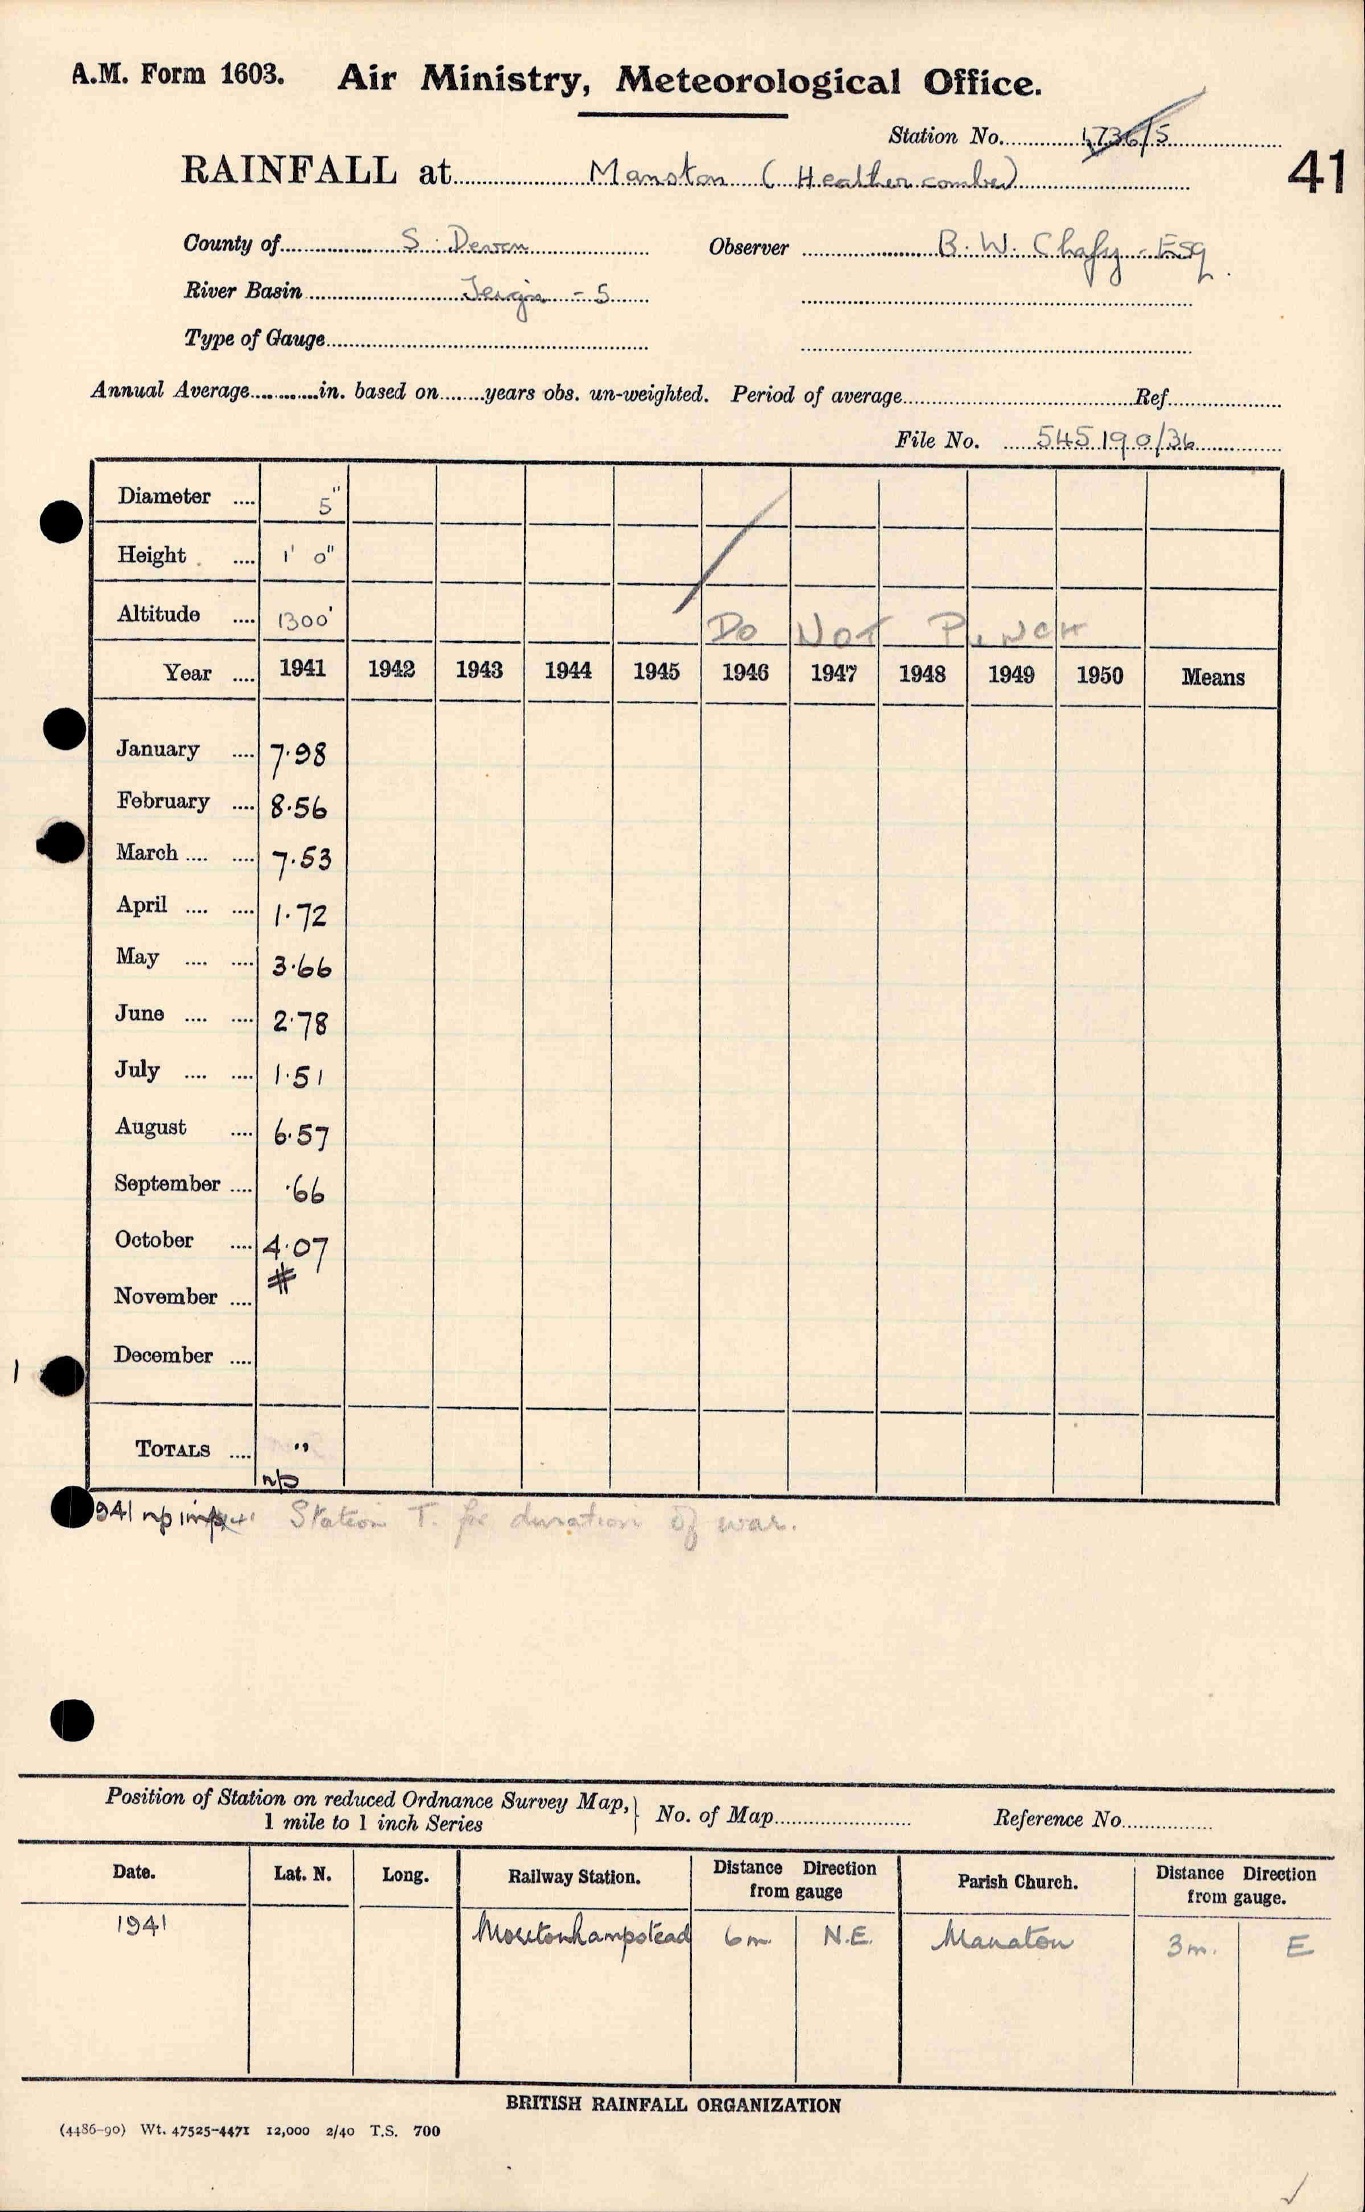 A.M. Form 1603. Air Ministry, Meteorological Office.
Station No. 1736/5
41
RAINFALL at Manston (Heathercombe)
County of S. Devon Observer B. W. Chafy - Esq.
River Basin - 5
Type of Gauge
Annual Average in. based on years obs. un-weighted. Period of average Ref
File No. 545190/36
Diameter .... 5"
Height .... 1' 0"
Altitude .... 1300' Do Not Punch
Year .... 1941 1942 1943 1944 1945 1946 1947 1948 1949 1950 Means
January .... 7.98
February .... 8.56
March .... .... 7.53
April .... .... 1.72
May .... .... 3.66
June .... .... 2.78
July .... .... 1.51
August .... 6.57
September .... .66
October .... 4.07
#
November ....
December ....
1
TOTALS .... "
np
1941 np Station T. for duration of war.
Position of Station on reduced Ordnance Survey Map, } No. of Map Reference No.
1 mile to 1 inch Series
Date. Lat. N. Long. Railway Station. Distance Direction from gauge Parish Church. Distance Direction from gauge.
1941 Moretonhampstead 6m N.E. Manaton 3m. E
BRITISH RAINFALL ORGANIZATION
(4486-90) Wt. 47525-4471 12,000 2/40 T.S. 700